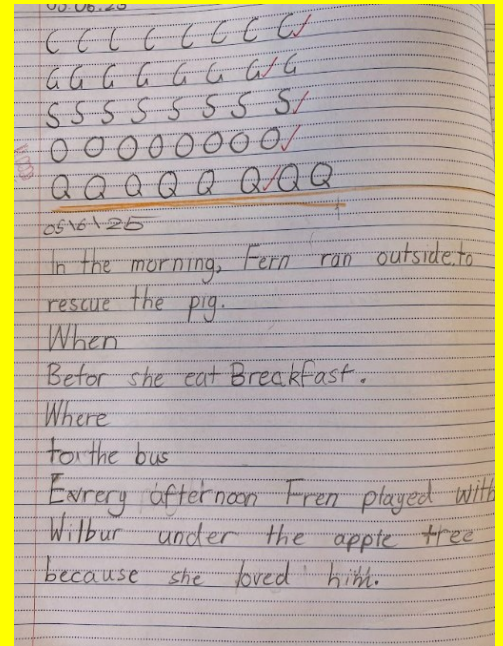 03.06.25
C C C C C C C C
G G G G G G G G
S S S S S S S S
O O O O O O O O
Q Q Q Q Q Q Q Q
05\6\25
In the morning, Fern ran outside.to
rescue the pig.
When
Befor she eat Breakfast.
Where
to the bus
Evrery afternoon Fren played with
Wilbur under the apple tree
because she loved him.